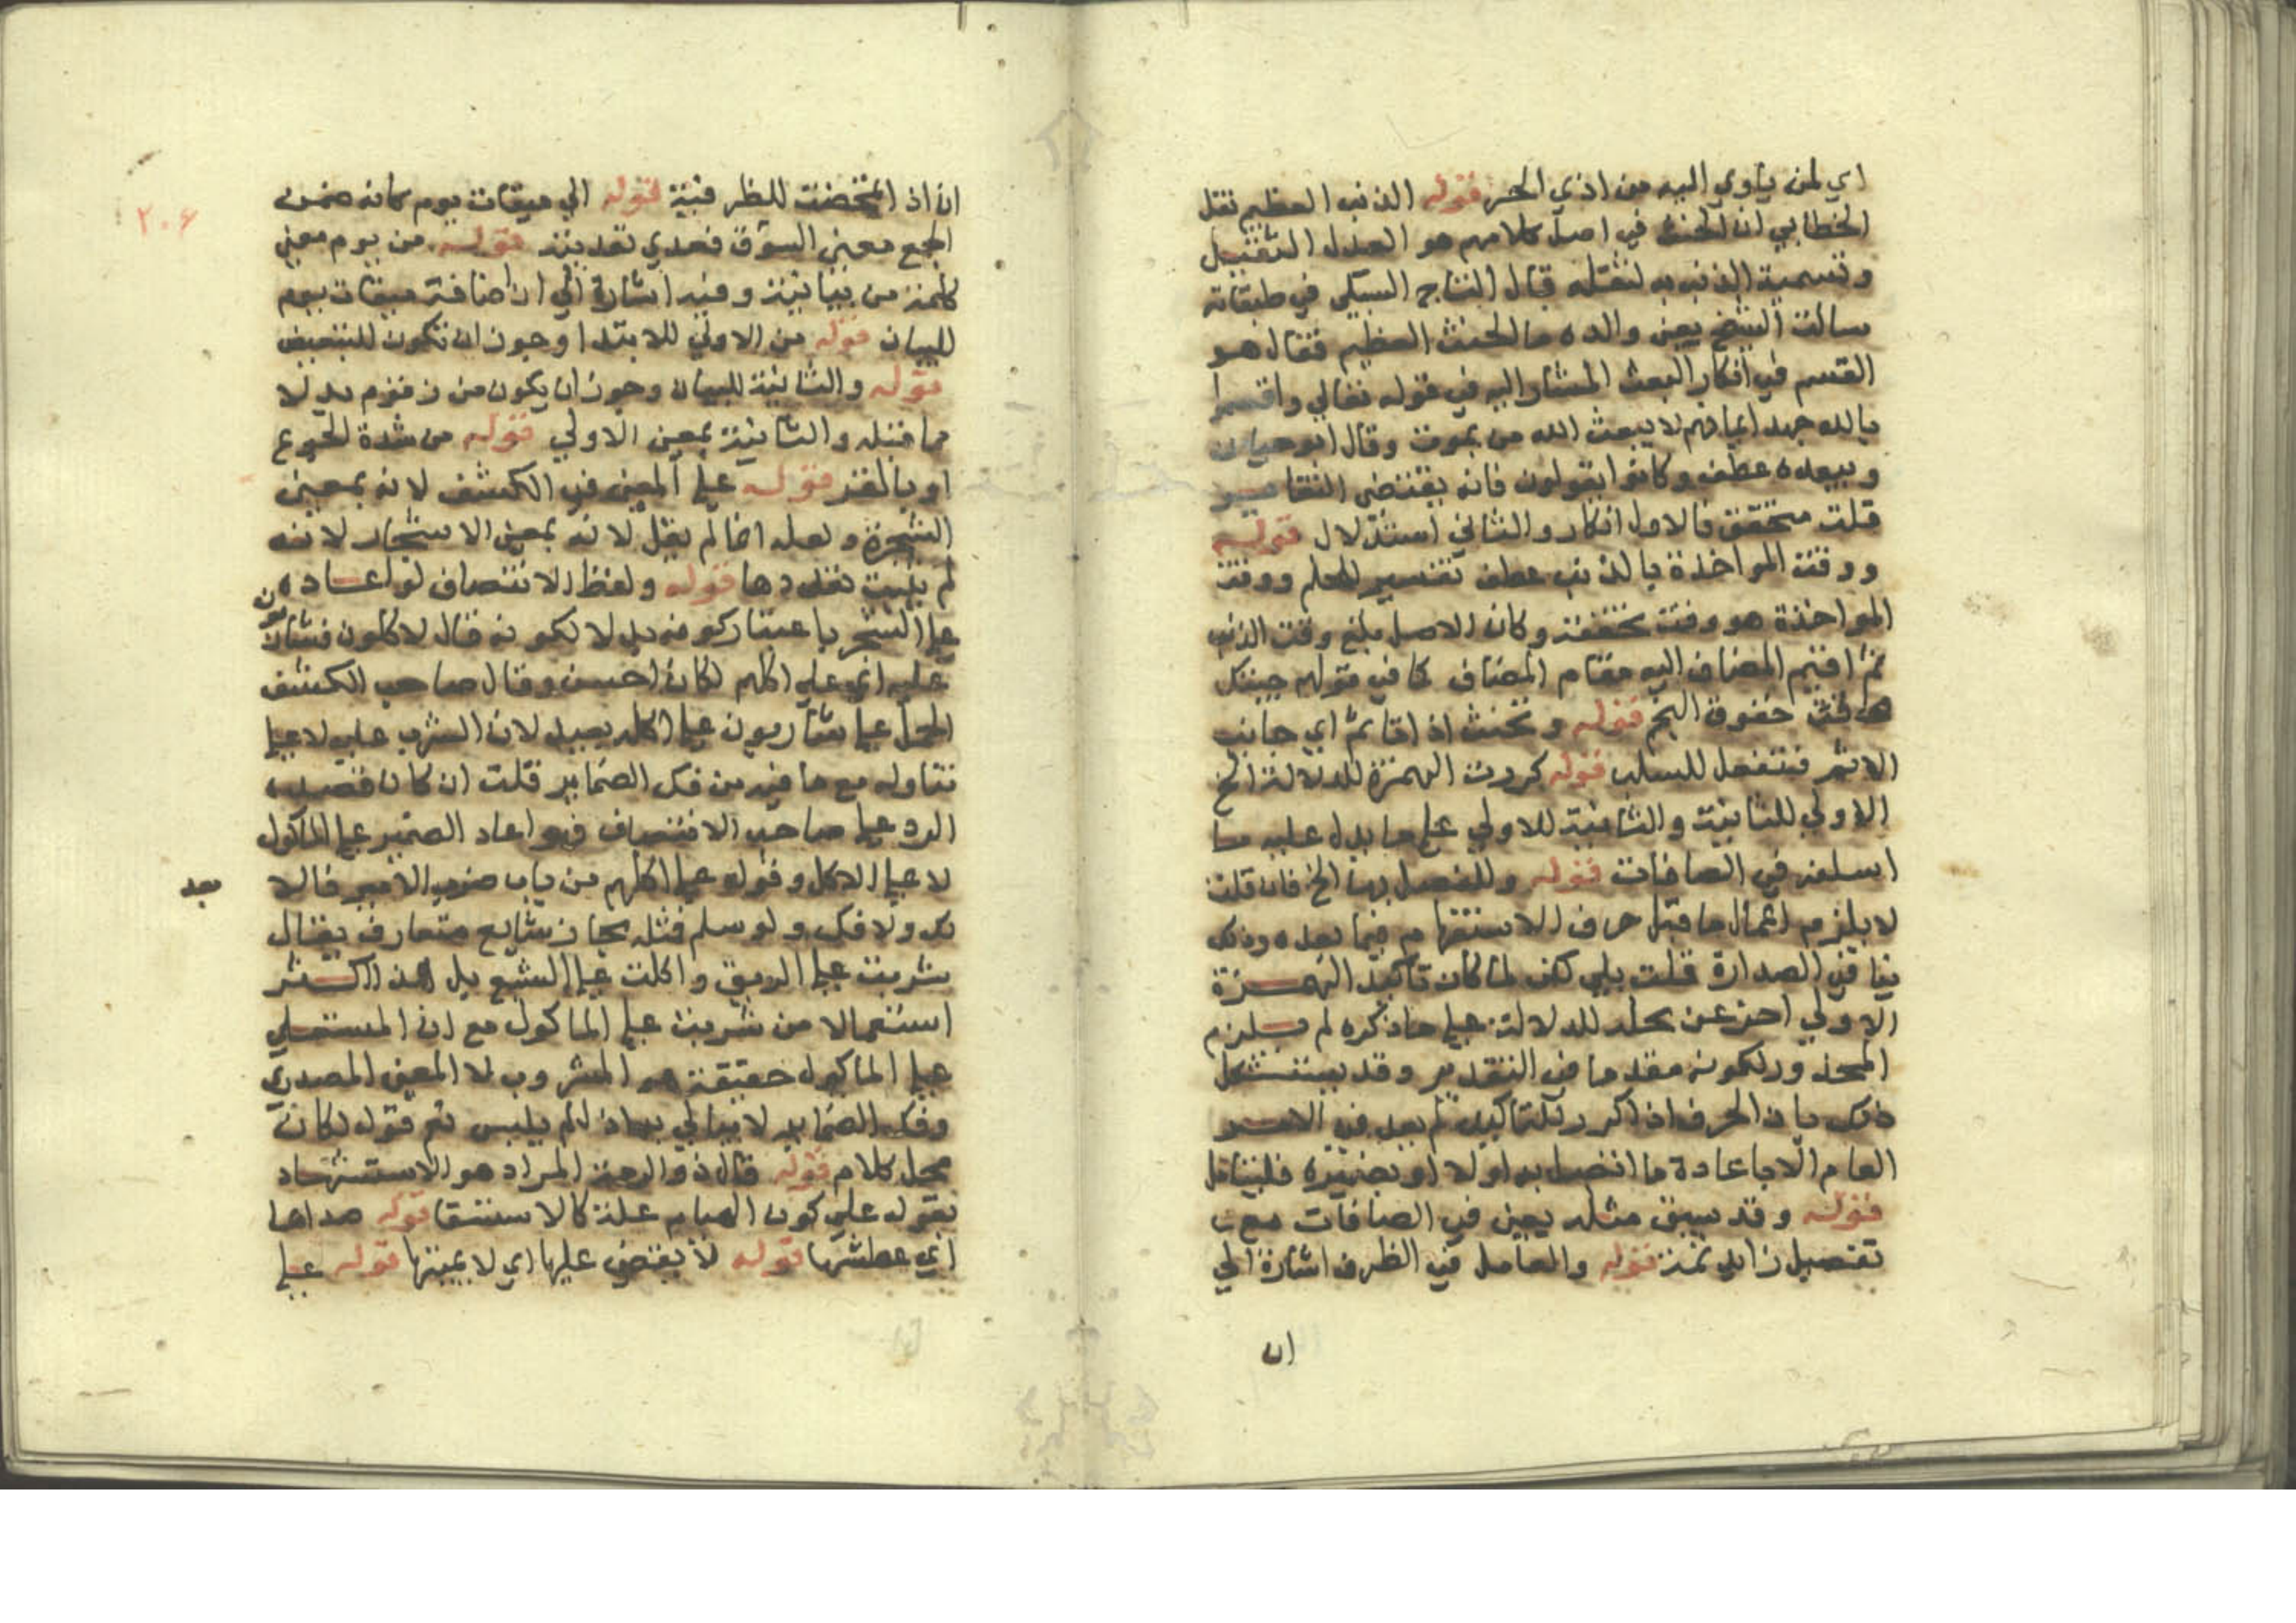 اي لمن ياوي اليه من اذي الحر قوله الذنب العظيم نقل
الخطابي ان الحنث في اصل كلامهم هو العدل الثقيل
وتسمية الذنب به لثقله قال التاج السبكي في طبقاته
سالت الشيخ يعني والده ما الحنث العظيم فقال هو
القسم في انكار البعث المشار اليه في قوله تعالي واقسموا
بالله جهد ايمانهم لا يبعث الله من يموت وقال ابو حيان
ويبعده عطف وكانوا يقولون فانه يقتضي التغاير
قلت متحقق فالاول انكار والثاني استدلال قوله
ووقت المواخذة بالذنب عطف تفسير للحلم ووقت
المواخذة هو وقت تحققه وكان الاصل بلغ وقت الذنب
ثم اقيم المضاف اليه مقام المضاف كما في قولهم جيتك
خفوق النجم قوله وتحنث اذا تاثم اي جانب
الاثم فتفعل للسلب قوله كررت الهمزة للدلالة الخ
الاولي للثانية والثانية للاولي علي ما يدل عليه ما
اسلفه في الصافات قوله وللفصل بها الخ فان قلت
لا يلزم اعمال ما قبل حرف الاستفهام فيما بعده وذلك
ينافي الصدارة قلت بلي لكن لما كان تاكيد الهمزة
الاولي اخر عن محله للدلالة علي ما ذكره لم يلزم
المحذور لكونه مقدما في التقدير وقد يستشكل
ذلك بان الحرف اذا كرر للتاكيد لم يعد في الامر
العام الا باعادة ما اتصل به اولا او بضميره فليتامل
قوله وقد سبق مثله يعني في الصافات مع
تفصيل زايد ثمة قوله والعامل في الظرف اشارة الي
ان
٢٠٦
ان اذا تمحضت للظرفية قوله الي ميقات يوم كانه ضمن
الجمع معني السوق فعدي تعديته قوله من يوم معين
كلمة من بيانية وفيه اشارة الي ان اضافة ميقات يوم
للبيان قوله من الاولي للابتدا وجوز ان تكون للتبعيض
قوله والثانية للبيان وجوز ان يكون من زقوم بدلا
مما قبله والثانية بمعني الاولي قوله من شدة الجوع
او بالقسر قوله علي المعني في الكشف لانه بمعني
الشجرة ولعله انما لم يقل لانه بمعني الاشجار لانه
لم يثبت تعددها قوله ولفظ الانتصاف لو اعاده
علي الشجر باعتبار كونه بدلا لكونه قال لاكلون فشاربون
عليه اي علي اكلهم لكان احسن وقال صاحب الكشف
الحمل علي شاربون علي اكله بعيد لان الشرب عليه لا علي
تناوله مع ما فيه من فك الضماير قلت ان كان قصده
الرد علي صاحب الانتصاف فهو اعاد الضمير علي الماكول
لا علي الاكل وقوله علي اكلهم من باب ضرب الامير فالا
بعد
بعد ولا فك ولو سلم فمثله مجاز شايع متعارف يقال
شربت علي الريق واكلت علي الشبع بل هذا اكثر
استعمالا من شربت علي الماكول مع ان المستعلي
علي الماكول حقيقة هو المشروب لا المعني المصدري
وفك الضماير لا يبالي به اذا لم يلبس ثم قوله لكان
محل كلام قوله قال ذو الرمة المراد هو الاستشهاد
بقوله علي كون الهيام علة كالاستسقا قوله صداها
اي عطشها قوله لا يقضي عليها اي لا يميتها قوله علي